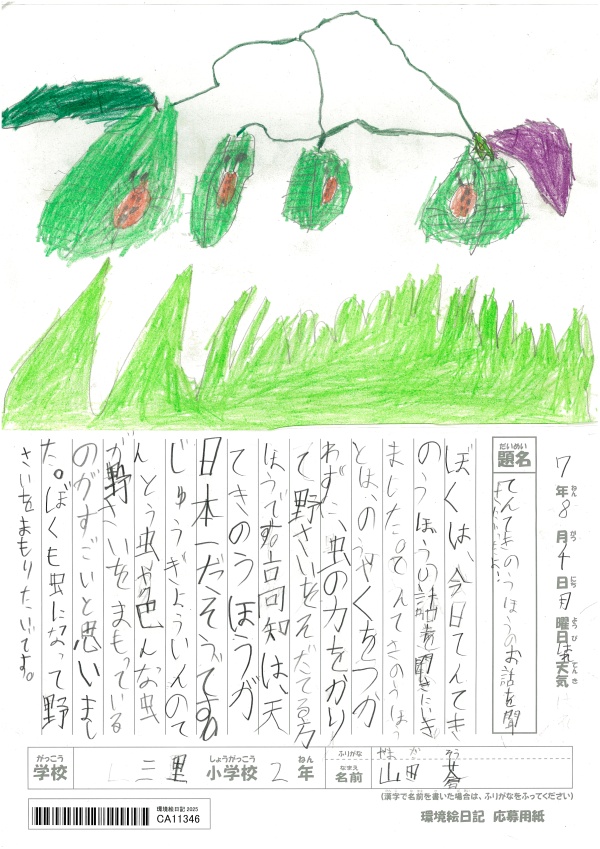 7年8月4日月曜日はれ天気
ねん がつ にち ようび てんき
だいめい
題名
てんてきのうほうのお話を聞
きたいさ
ぼくは、今日てんてき
のうほうの話を聞きにいき
ました。てんてきのうほう
とは、のうやくをつか
わずに、虫の力をかり
て野さいをそだてる方
ほうです。高知は、天
てきのうほうが
日本一だそうです。
じゅうぎょういんのて
んとう虫や色んな虫
が野さいをまもっている
のがすごいと思いまし
た。ぼくも虫になって野
さいをまもりたいです。
がっこう しょうがっこう ねん
学校 三里 小学校 2年
ふりがな やまがそう
なまえ
名前 山田蒼
(漢字で名前を書いた場合は、ふりがなをふってください)
環境絵日記 2025
CA11346
環境絵日記 応募用紙